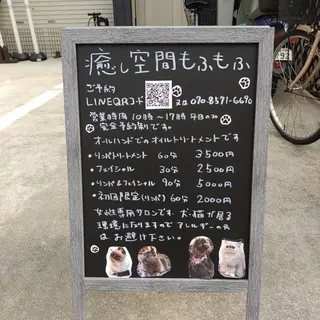 癒し空間もふもふ
ご予約
LINEQRコード 又は 070-8571-6690
営業時間 10時〜17時 平日のみ
完全予約制です。
オールハンドでのオイルトリートメントです
・リンパトリートメント 60分 3500円
・フェイシャル 30分 2500円
・リンパ&フェイシャル 90分 5000円
・初回限定(リンパ) 60分 2000円
女性専用サロンです。犬・猫が居る
環境になりますのでアレルギーの方
はお避け下さい。